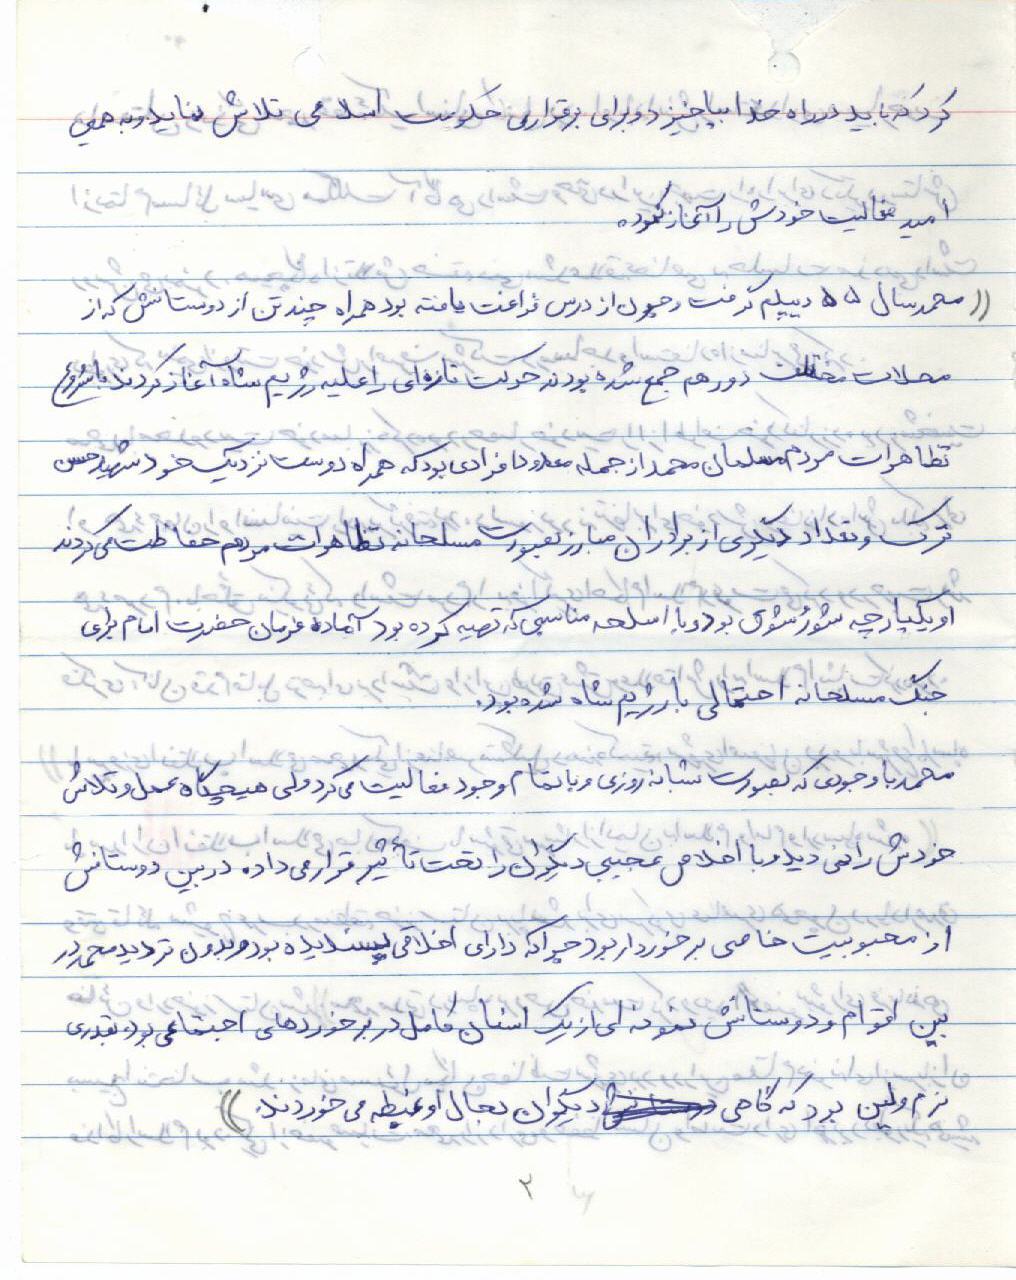 کرد که باید در راه خدا بپاخیزد و برای برقراری حکومت اسلامی تلاش نماید و به همین
امید فعالیت خودش را آغاز نموده
((محمد سال ۵۵ دیپلم گرفت و چون از درس فراغت یافته بود همراه چند تن از دوستانش که از
محلات مختلف دور هم جمع شده بودند حرکت تازه‌ای را علیه رژیم شاه آغاز کردند با شروع
تظاهرات مردم مسلمان محمد از جمله معدود افرادی بود که همراه دوست نزدیک خود شهید حسن
ترک و تعداد دیگری از برادران مبارز بصورت مسلحانه تظاهرات مردم حفاظت می‌کردند
او یکپارچه شور و شوق بود و با اسلحه مناسبی که تهیه کرده بود آماده فرمان حضرت امام برای
جنگ مسلحانه احتمالی با رژیم شاه شده بود.
محمد با وجودی که بصورت شبانه روزی و با تمام وجود فعالیت می‌کرد ولی هیچگاه عمل و تلاش
خودش را نمی دید و با اخلاص عجیبی دیگران را تحت تأثیر قرار می‌داد. در بین دوستانش
از محبوبیت خاصی برخوردار بود چرا که دارای اخلاقی پسندیده بود و بدون تردید محمد در
بین اقوام و دوستانش نمونه ای از یک انسان کامل در برخوردهای اجتماعی بود و بقدری
نرم و لین بود که گاهی دیگران بحال او غبطه می خوردند.))
۲